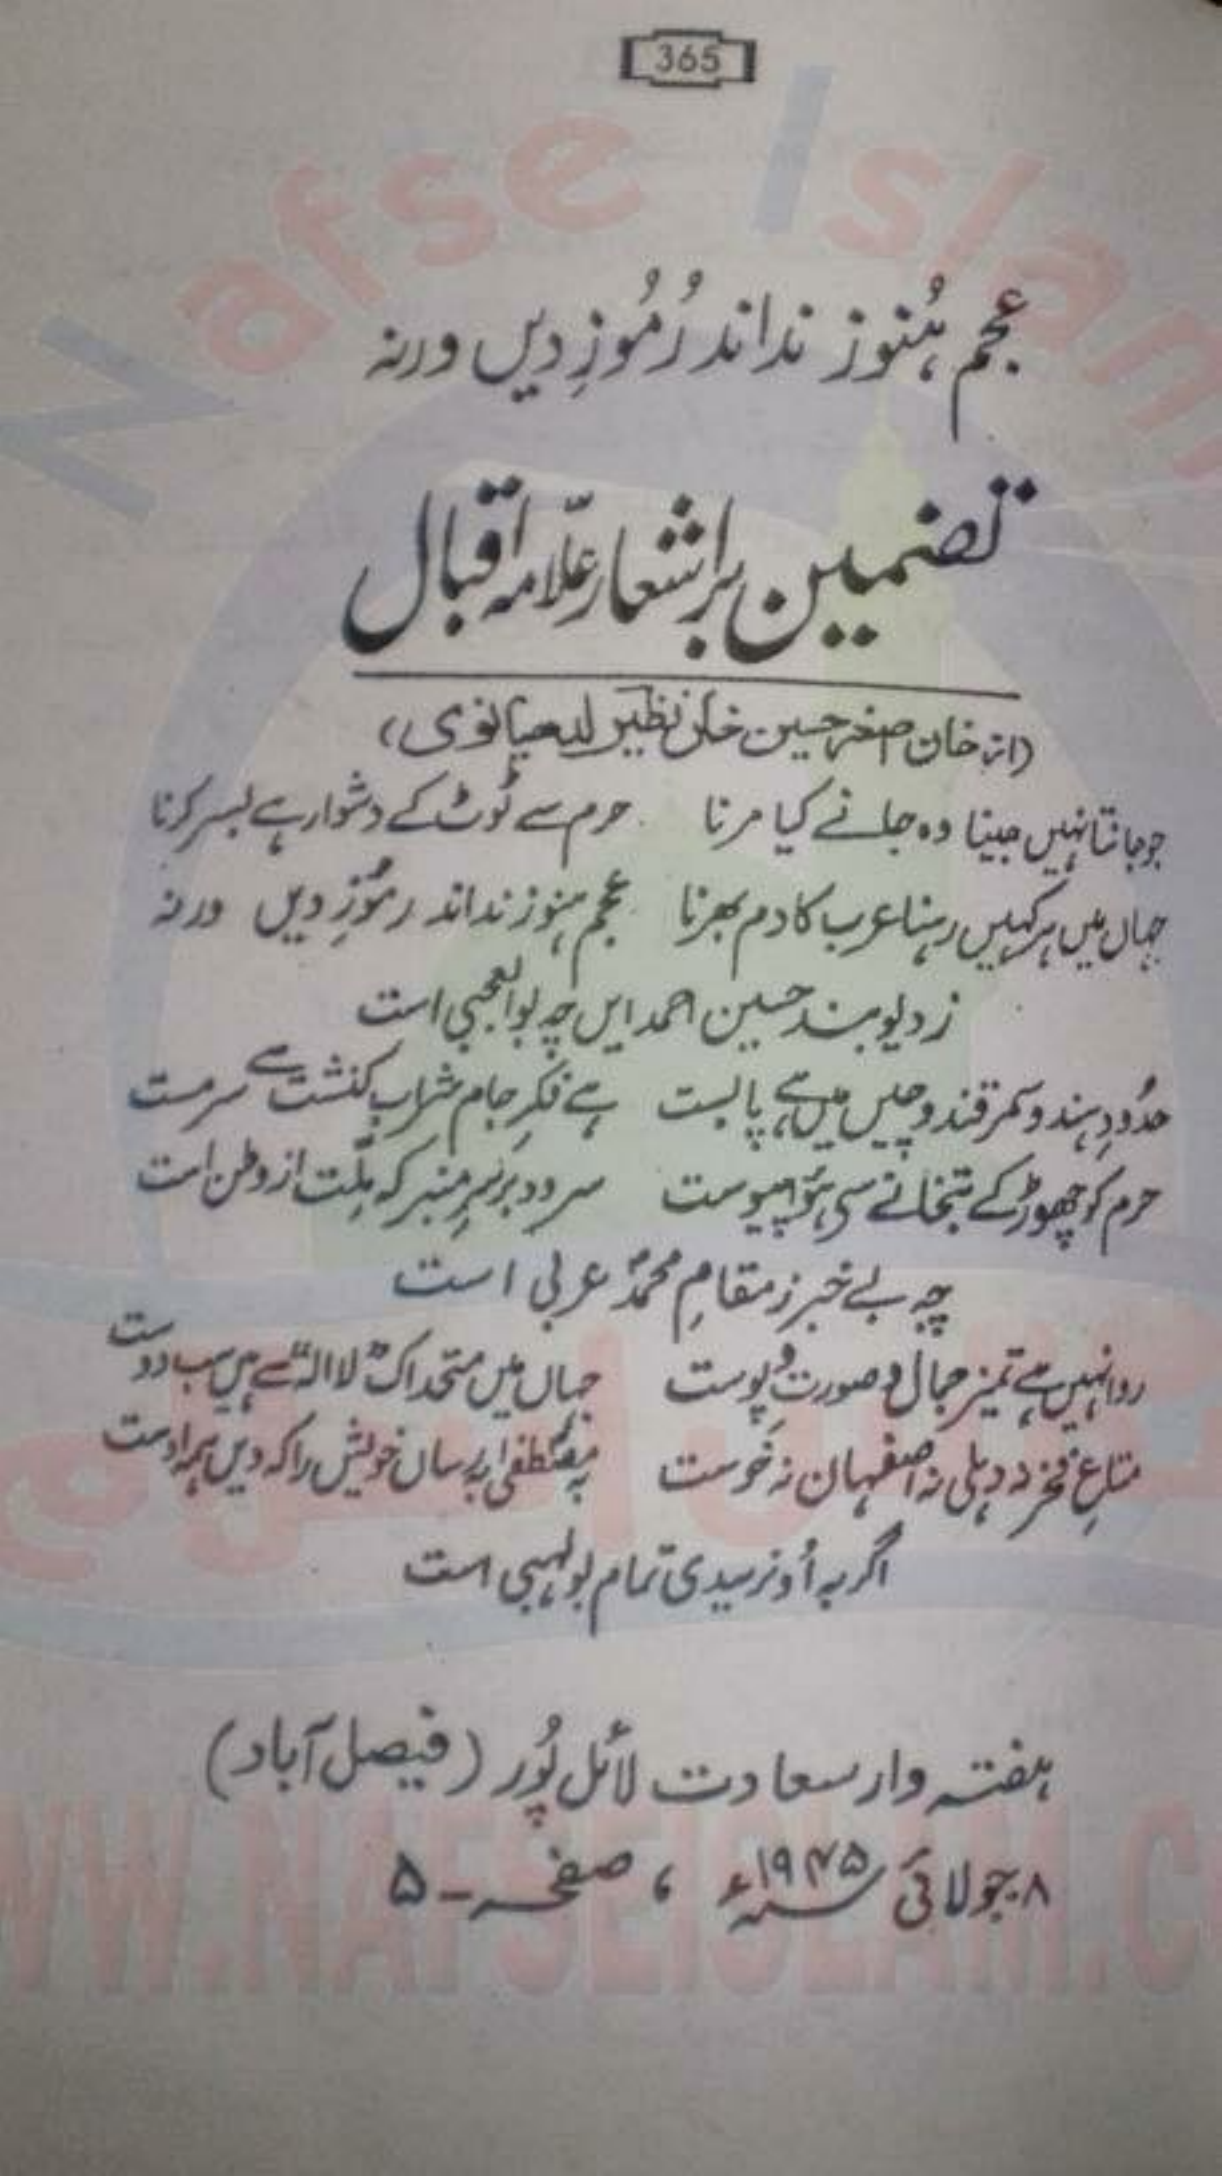 365
Nafse Islam
عجم ہُنوز نداند رُمُوزِ دیں ورنہ
تضمین بر اشعار علّامہ اقبال
(از خان اصغر حسین خان نظیر لدھیانوی)
جو جانتا نہیں جینا وہ جانے کیا مرنا حرم سے ٹوٹ کے دشوار ہے بسر کرنا
جہاں میں ہر کہیں رہنا عرب کا دم بھرنا عجم ہنوز نداند رمُوزِ دیں ورنہ
ز دیوبند حسین احمد ایں چہ بوالعجبی است
حدُودِ ہند و سمرقند و چیں میں ہے پابست ہے فکرِ جام شرابِ کنشت سے سرمست
حرم کو چھوڑ کے بتخانے سی ہؤا پیوست سرود بر سرِ منبر کہ مِلّت از وطن است
چہ بے خبر ز مقامِ محمدؐ عربی است
روا نہیں ہے تمیز جمال و صورت و پوست جہاں میں متحد اک "لا الہ" سے ہیں سب دوست
متاعِ فخر نہ دہلی نہ اصفہان نہ خوست بمصطفیٰؐ برساں خویش را کہ دیں ہمہ اوست
اگر بہ اُو نرسیدی تمام بولہبی است
ہفتہ وار سعادت لائل پُور (فیصل آباد)
۸ جولائی سنہ ۱۹۴۵ء ، صفحہ - ۵
WWW.NAFSEISLAM.C